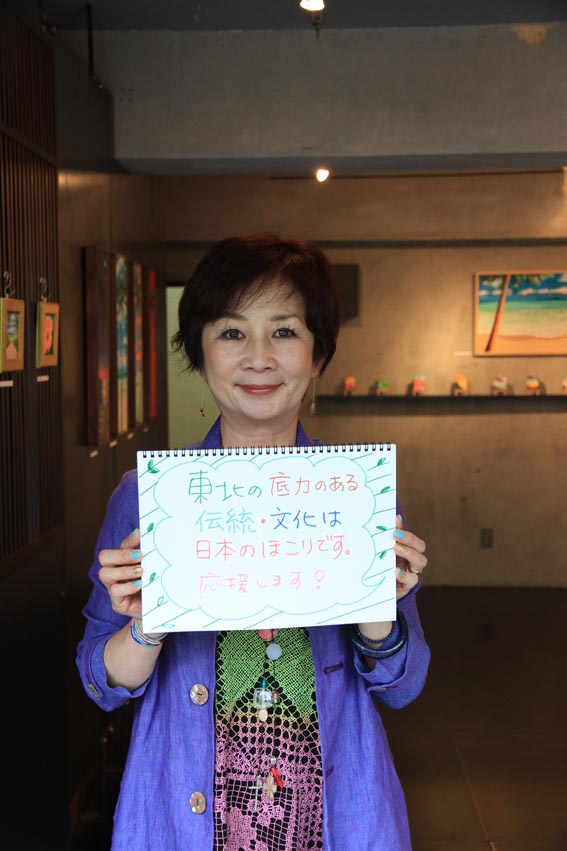 東北の底力のある
伝統・文化は
日本のほこりです。
応援します!